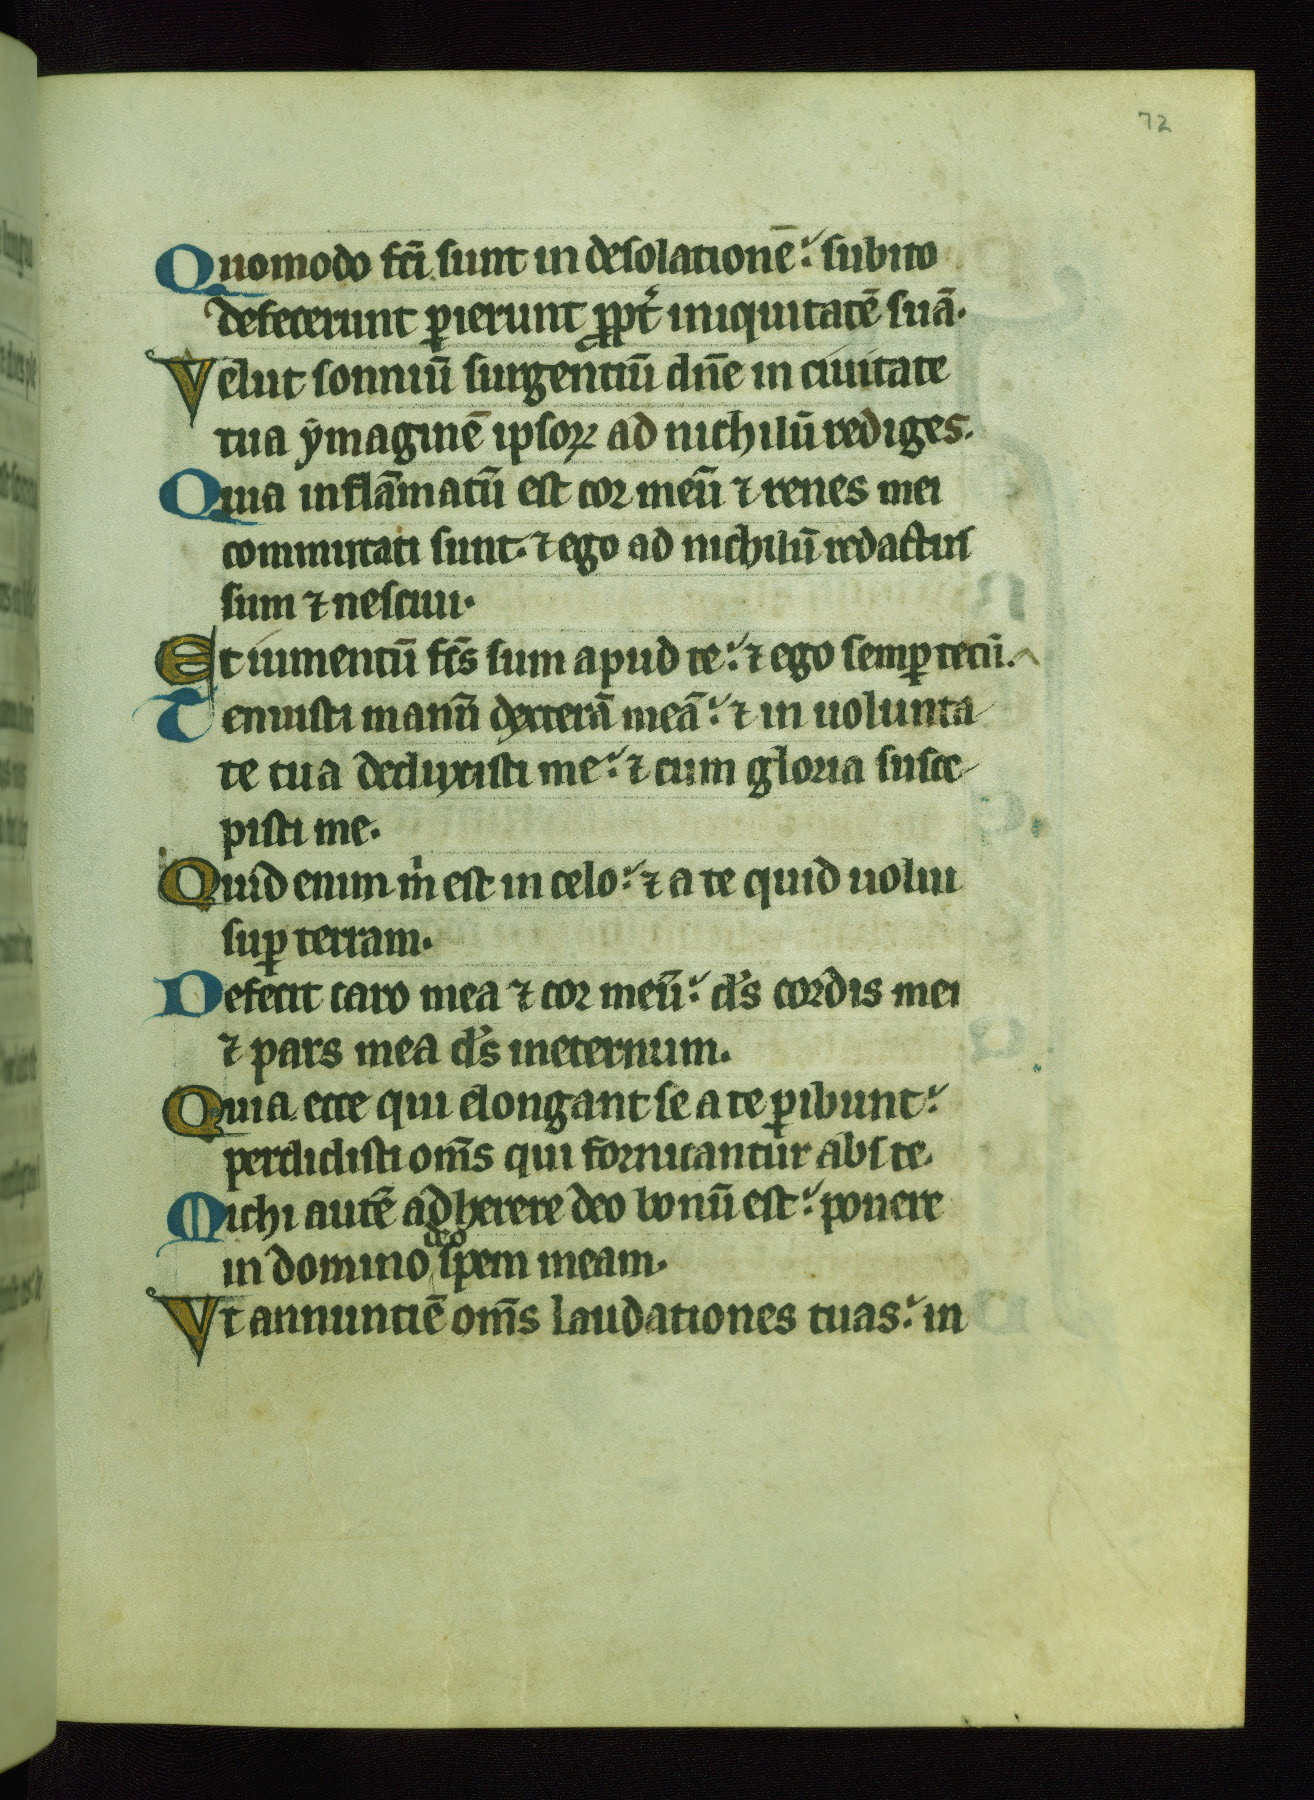 72
Quomodo fc̄i sunt in desolationē: subito
defecerunt ꝑierunt ꝓpt̾ iniquitatē suā.
Velut somniū surgentiū dn̄e in ciuitate
tua ẏmaginē ipsoꝝ ad nichilū rediges.
Quia inflāmatū est cor meū ⁊ renes mei
commutati sunt. ⁊ ego ad nichilū redactus
sum ⁊ nesciui.
Et iumentū fc̄s sum apud te: ⁊ ego semꝑ tecū.
Tenuisti manū dexterā meā: ⁊ in uolunta
te tua deduxisti me: ⁊ cum gloria susce
pisti me.
Quid enim m̍ est in celo: ⁊ a te quid uolui
suꝑ terram.
Defecit caro mea ⁊ cor meū: d̾s cordis mei
⁊ pars mea d̾s ineternum.
Quia ecce qui elongant se a te ꝑibunt:
perdidisti om̄s qui fornicantur abs te.
Michi autē adherere deo bonū est: ponere
deo
in domino spem meam.
Vt annuntiē om̄s laudationes tuas: in